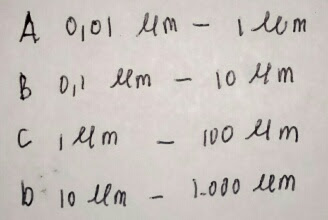 A 0,01 µm – 1 µm
B 0,1 µm – 10 µm
C 1 µm – 100 µm
D 10 µm – 1.000 µm